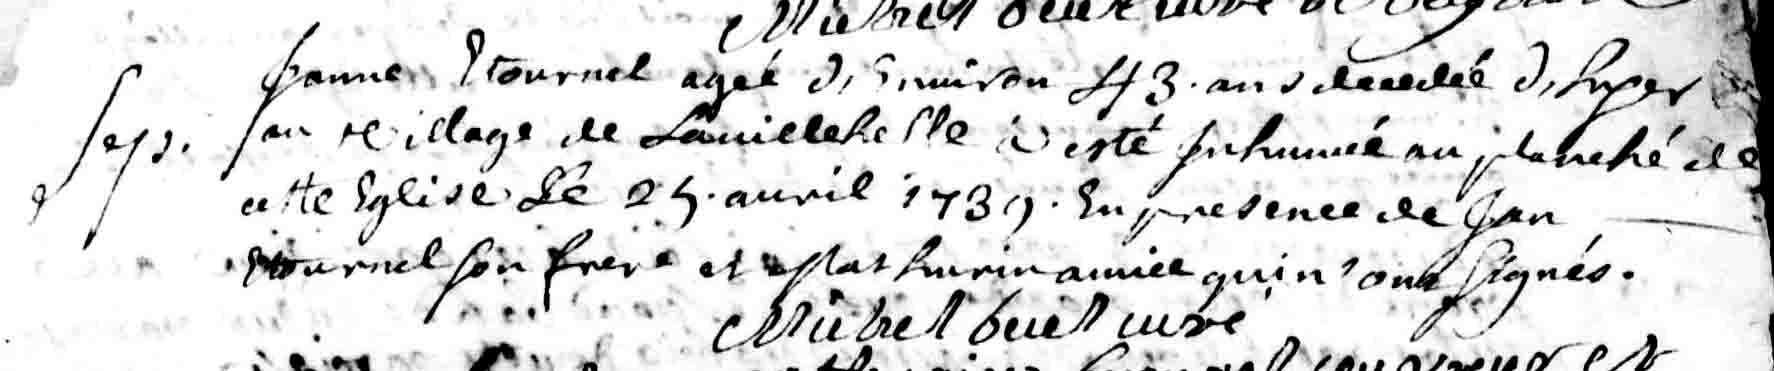 Michel buet curé
Jeanne Etournel agéé d'Environ 43. ans decedéé d'hyer
Sep. au village de Lavillehelle à esté Inhuméé au planché de
cette Eglise Le 25. avril 1739. En presence de Jan
Etournel son frere et Mathurin amice qui n'ont signés.
Michel buet curé